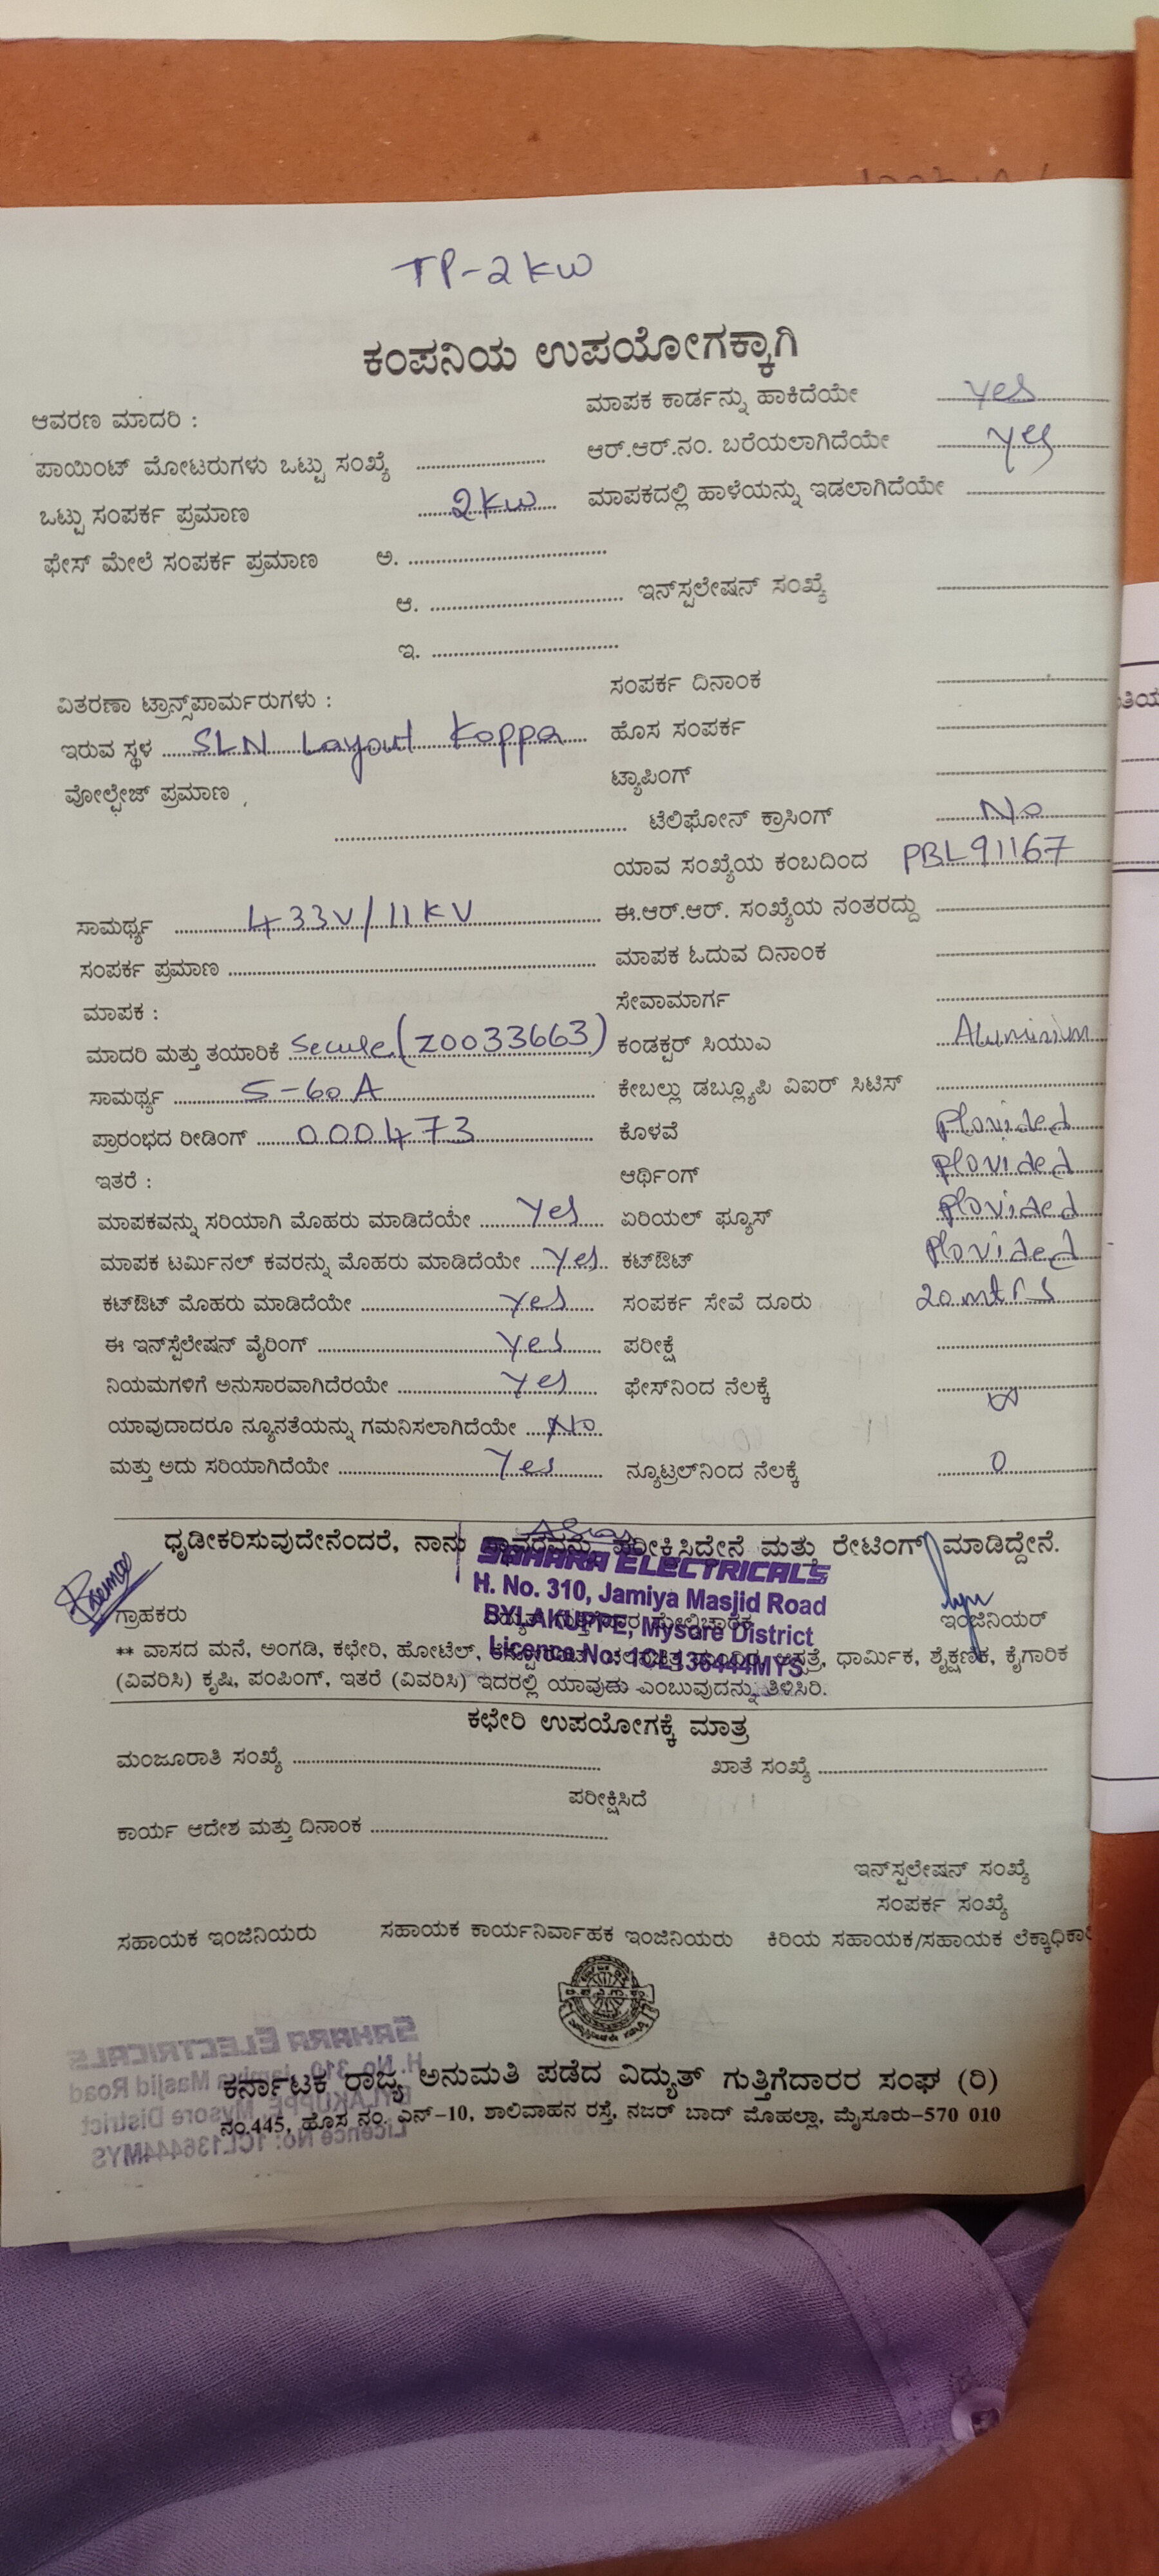 TP-2kw
ಕಂಪನಿಯ ಉಪಯೋಗಕ್ಕಾಗಿ
ಆವರಣ ಮಾದರಿ :
ಮಾಪಕ ಕಾರ್ಡನ್ನು ಹಾಕಿದೆಯೇ yes
ಪಾಯಿಂಟ್ ಮೋಟರುಗಳು ಒಟ್ಟು ಸಂಖ್ಯೆ
ಆರ್.ಆರ್.ನಂ. ಬರೆಯಲಾಗಿದೆಯೇ yes
ಒಟ್ಟು ಸಂಪರ್ಕ ಪ್ರಮಾಣ 2kw
ಮಾಪಕದಲ್ಲಿ ಹಾಳೆಯನ್ನು ಇಡಲಾಗಿದೆಯೇ
ಫೇಸ್ ಮೇಲೆ ಸಂಪರ್ಕ ಪ್ರಮಾಣ ಅ.
ಆ. ಇನ್‌ಸ್ಪಲೇಷನ್ ಸಂಖ್ಯೆ
ಇ.
ಸಂಪರ್ಕ ದಿನಾಂಕ
ವಿತರಣಾ ಟ್ರಾನ್ಸ್‌ಪಾರ್ಮರುಗಳು :
ಹೊಸ ಸಂಪರ್ಕ
ಇರುವ ಸ್ಥಳ SLN Layout Koppa
ಟ್ಯಾಪಿಂಗ್
ವೋಲ್ಟೇಜ್ ಪ್ರಮಾಣ
ಟೆಲಿಫೋನ್ ಕ್ರಾಸಿಂಗ್ No
ಯಾವ ಸಂಖ್ಯೆಯ ಕಂಬದಿಂದ PBL91167
ಸಾಮರ್ಥ್ಯ 433V/11KV
ಈ.ಆರ್.ಆರ್. ಸಂಖ್ಯೆಯ ನಂತರದ್ದು
ಸಂಪರ್ಕ ಪ್ರಮಾಣ
ಮಾಪಕ ಓದುವ ದಿನಾಂಕ
ಮಾಪಕ :
ಸೇವಾಮಾರ್ಗ
ಮಾದರಿ ಮತ್ತು ತಯಾರಿಕೆ Secure (Z0033663)
ಕಂಡಕ್ಟರ್ ಸಿಯುಎ Aluminium
ಸಾಮರ್ಥ್ಯ 5-60A
ಕೇಬಲ್ಲು ಡಬ್ಲ್ಯೂಪಿ ವಿಐರ್ ಸಿಟಿಸ್
ಪ್ರಾರಂಭದ ರೀಡಿಂಗ್ 000473
ಕೊಳವೆ Provided
ಇತರೆ :
ಆರ್ಥಿಂಗ್ Provided
ಮಾಪಕವನ್ನು ಸರಿಯಾಗಿ ಮೊಹರು ಮಾಡಿದೆಯೇ Yes
ಏರಿಯಲ್ ಫ್ಯೂಸ್ Provided
ಮಾಪಕ ಟರ್ಮಿನಲ್ ಕವರನ್ನು ಮೊಹರು ಮಾಡಿದೆಯೇ Yes
ಕಟ್‌ಔಟ್ Provided
ಕಟ್‌ಔಟ್ ಮೊಹರು ಮಾಡಿದೆಯೇ Yes
ಸಂಪರ್ಕ ಸೇವೆ ದೂರು 20 mtrs
ಈ ಇನ್‌ಸ್ಪೆಲೇಷನ್ ವೈರಿಂಗ್ Yes
ಪರೀಕ್ಷೆ
ನಿಯಮಗಳಿಗೆ ಅನುಸಾರವಾಗಿದೆರಯೇ Yes
ಫೇಸ್‌ನಿಂದ ನೆಲಕ್ಕೆ ∞
ಯಾವುದಾದರೂ ನ್ಯೂನತೆಯನ್ನು ಗಮನಿಸಲಾಗಿದೆಯೇ No
ಮತ್ತು ಅದು ಸರಿಯಾಗಿದೆಯೇ Yes
ನ್ಯೂಟ್ರಲ್‌ನಿಂದ ನೆಲಕ್ಕೆ 0
ಧೃಡೀಕರಿಸುವುದೇನೆಂದರೆ, ನಾನು ಸ್ಥಾವರವನ್ನು ಪರೀಕ್ಷಿಸಿದ್ದೇನೆ ಮತ್ತು ರೇಟಿಂಗ್ ಮಾಡಿದ್ದೇನೆ.
SAHARA ELECTRICALS
H. No. 310, Jamiya Masjid Road
BYLAKUPPE, Mysore District
Licence No: 1CL136444MYS
ಗ್ರಾಹಕರು ಇಂಜಿನಿಯರ್
** ವಾಸದ ಮನೆ, ಅಂಗಡಿ, ಕಛೇರಿ, ಹೋಟೆಲ್, ಆಸ್ಪತ್ರೆ, ಧಾರ್ಮಿಕ, ಶೈಕ್ಷಣಿಕ, ಕೈಗಾರಿಕ
(ವಿವರಿಸಿ) ಕೃಷಿ, ಪಂಪಿಂಗ್, ಇತರೆ (ವಿವರಿಸಿ) ಇದರಲ್ಲಿ ಯಾವುದು ಎಂಬುವುದನ್ನು ತಿಳಿಸಿರಿ.
ಕಛೇರಿ ಉಪಯೋಗಕ್ಕೆ ಮಾತ್ರ
ಮಂಜೂರಾತಿ ಸಂಖ್ಯೆ ಖಾತೆ ಸಂಖ್ಯೆ
ಪರೀಕ್ಷಿಸಿದೆ
ಕಾರ್ಯ ಆದೇಶ ಮತ್ತು ದಿನಾಂಕ
ಇನ್‌ಸ್ಪಲೇಷನ್ ಸಂಖ್ಯೆ
ಸಂಪರ್ಕ ಸಂಖ್ಯೆ
ಸಹಾಯಕ ಇಂಜಿನಿಯರು ಸಹಾಯಕ ಕಾರ್ಯನಿರ್ವಾಹಕ ಇಂಜಿನಿಯರು ಕಿರಿಯ ಸಹಾಯಕ/ಸಹಾಯಕ ಲೆಕ್ಕಾಧಿಕಾರಿ
ಕರ್ನಾಟಕ ರಾಜ್ಯ ಅನುಮತಿ ಪಡೆದ ವಿದ್ಯುತ್ ಗುತ್ತಿಗೆದಾರರ ಸಂಘ (ರಿ)
ನಂ.445, ಹೊಸ ನಂ. ಎನ್-10, ಶಾಲಿವಾಹನ ರಸ್ತೆ, ನಜರ್ ಬಾದ್ ಮೊಹಲ್ಲಾ, ಮೈಸೂರು-570 010